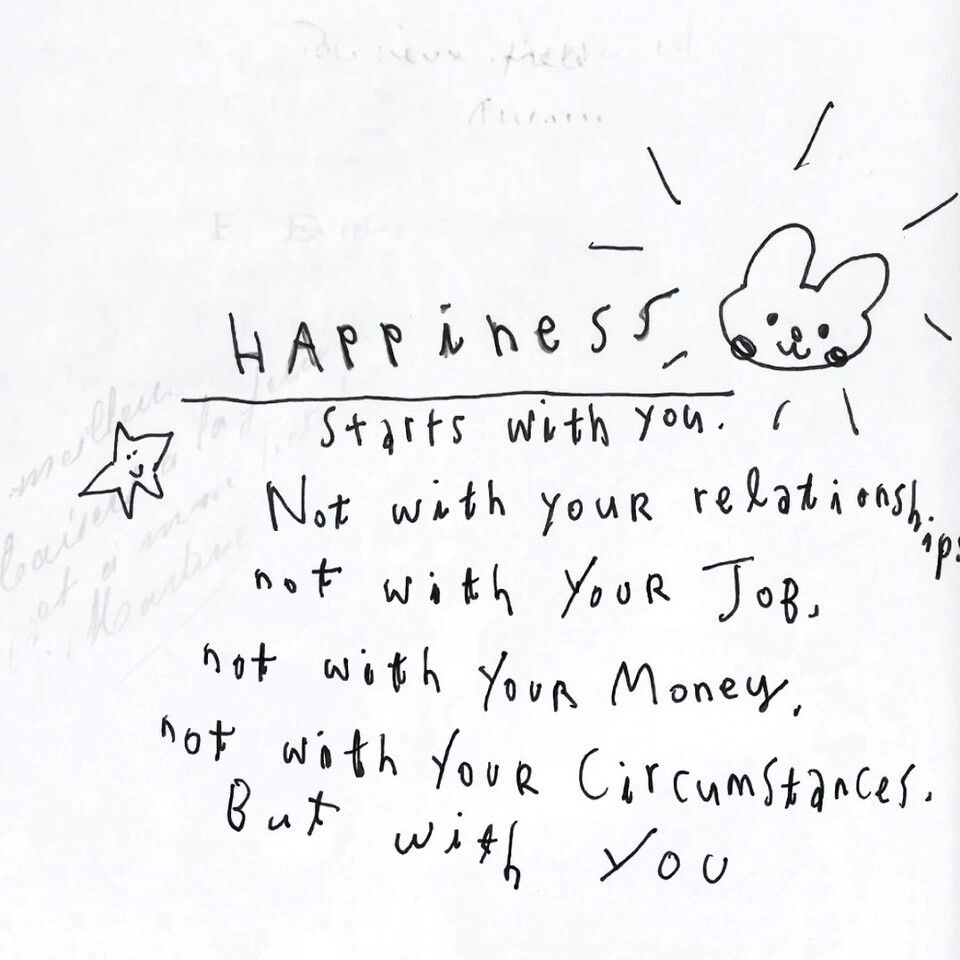 HAPPiness
Starts with you.
Not with youR relationships
not with YouR JoB,
not with YouR Money,
not with YouR Circumstances.
But with You